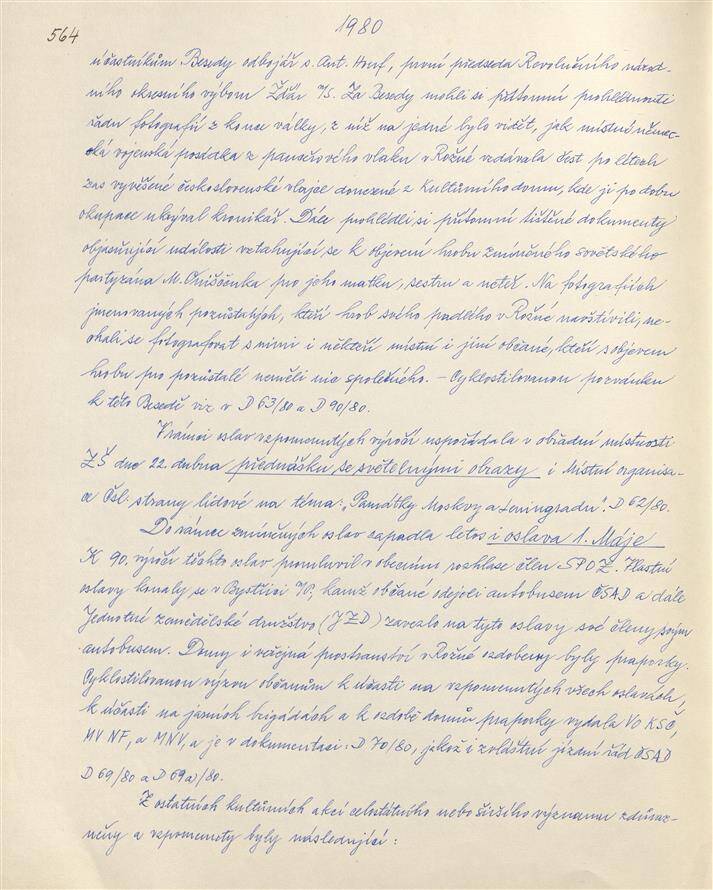 564
1980
účastníkům Besedy odbojář s. Ant. Houf, první předseda Revolučního národ-
ního okresního výboru Žďár n/S. Za Besedy mohli si přítomní prohlédnouti
řadu fotografií z konce války, z níž na jedné bylo vidět, jak místní němec-
ká vojenská posádka z pancéřového vlaku v Rožné vzdávala čest po létech
zas vyvěšené československé vlajce donezené z Kulturního domu, kde ji po dobu
okupace ukrýval kronikář. Dále pohlédli si přítomní tištěné dokumenty
objasňující události vztahující se k objevení hrobu zmíněného sovětského
partyzána M. Oniščenka pro jeho matku, sestru a neteř. Na fotografiích
jmenovaných pozůstalých, kteří hrob svého padlého v Rožné navštívili, ne-
chali se fotografovat s nimi i někteří místní i jiní občané, kteří s objevem
hrobu pro pozůstalé neměli nic společného. – Cyklostilovanou pozvánku
k této Besedě viz v D 63/80 a D 90/80.
V rámci oslav vzpomenutých výročí uspořádala v obřadní místnosti
ZŠ dne 22. dubna přednášku se světelnými obrazy i Místní organisa-
ce Čsl. strany lidové na téma: „Památky Moskvy a Leningradu". D 62/80.
Do rámce zmíněných oslav zapadla letos i oslava 1. Máje
K 90. výročí těchto oslav promluvil v obecním rozhlase člen SPOZ. Vlastní
oslavy konaly se v Bystřici n/P., kamž občané odejeli autobusem ČSAD a dále
Jednotné zemědělské družstvo (JZD) zavezlo na tyto oslavy své členy svým
autobusem. Domy i veřejná prostranství v Rožné ozdobeny byly praporky.
Cyklostilovanou výzvu občanům k účasti na vzpomenutých všech oslavách,
k účasti na jarních brigádách a k ozdobě domů praporky vydala VO KSČ,
MV NF, a MNV, a je v dokumentaci: D 70/80, jakož i zvláštní jízdní řád ČSAD
D 69/80 a D 69a)/80.
Z ostatních kulturních akcí celostátního nebo širšího významu zdůraz-
něny a vzpomenuty byly následující: